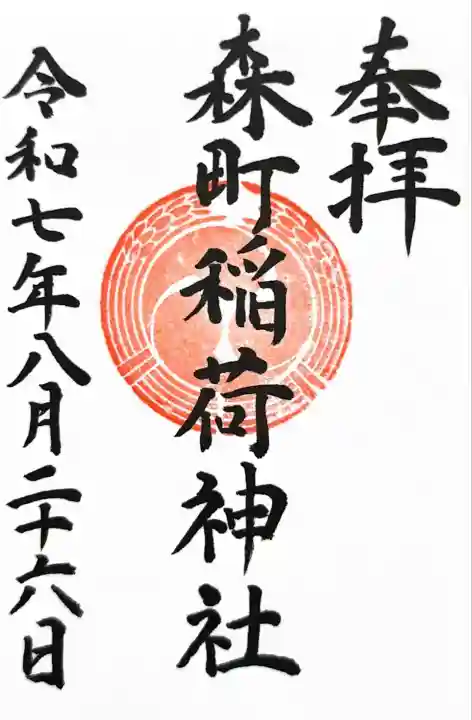 奉拝
森町稲荷神社
令和七年八月二十六日